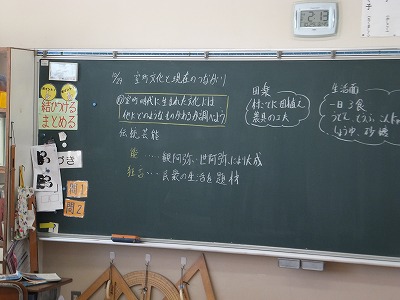 室町文化と現在のつながり
室町時代に生まれた文化には
他にどのようなものがあるか調べよう
伝統芸能
能……観阿弥・世阿弥により大成
狂言…民衆の生活を題材
田楽
農具の工夫
生活面
一日3食
うどん、とうふ、こんにゃ
しょうゆ、砂糖
結びつける
まとめる
づき
問1
問2